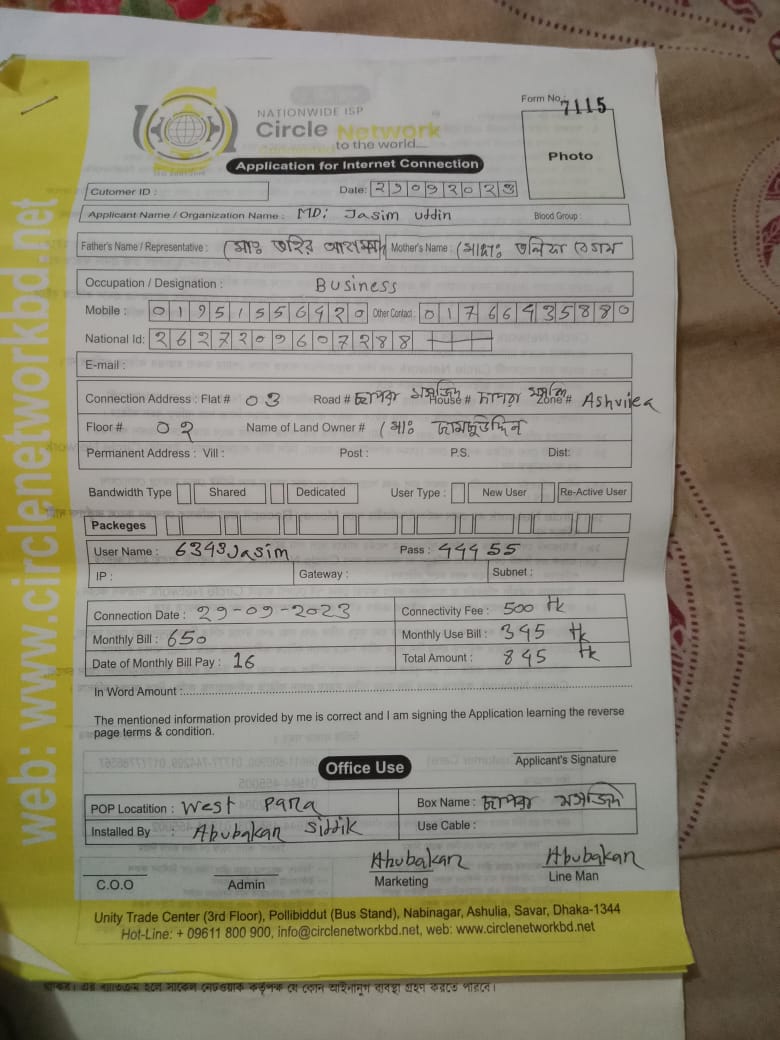 Form No.: 7115
NATIONWIDE ISP
Circle Network
to the world....
Application for Internet Connection
Photo
Cutomer ID :
Date: 29092023
Applicant Name / Organization Name : MD: Jasim uddin Blood Group :
Father's Name / Representative : মোঃ জহির Mother's Name : মোছাঃ বেগম
Occupation / Designation : Business
Mobile : 01951556420 Other Contact : 01766435880
National Id: 2627209607288
E-mail :
Connection Address : Flat # 03 Road # ছাপরা মসজিদ House # ছাপরা মসজিদ Zone # Ashuliea
Floor # 02 Name of Land Owner # মোঃ
Permanent Address : Vill : Post : P.S. Dist:
Bandwidth Type Shared Dedicated User Type : New User Re-Active User
Packeges
User Name : 6343Jasim Pass : 44455
IP : Gateway : Subnet :
Connection Date : 29-09-2023 Connectivity Fee : 500 Tk
Monthly Bill : 650 Monthly Use Bill : 345 Tk
Date of Monthly Bill Pay : 16 Total Amount : 845 Tk
In Word Amount :
The mentioned information provided by me is correct and I am signing the Application learning the reverse
page terms & condition.
Applicant's Signature
Office Use
POP Locatition : West Para Box Name : ছাপরা মসজিদ
Installed By : Abubakar Siddik Use Cable :
Abubakar Abubakar
C.O.O Admin Marketing Line Man
Unity Trade Center (3rd Floor), Pollibiddut (Bus Stand), Nabinagar, Ashulia, Savar, Dhaka-1344
Hot-Line: + 09611 800 900, info@circlenetworkbd.net, web: www.circlenetworkbd.net
web: www.circlenetworkbd.net